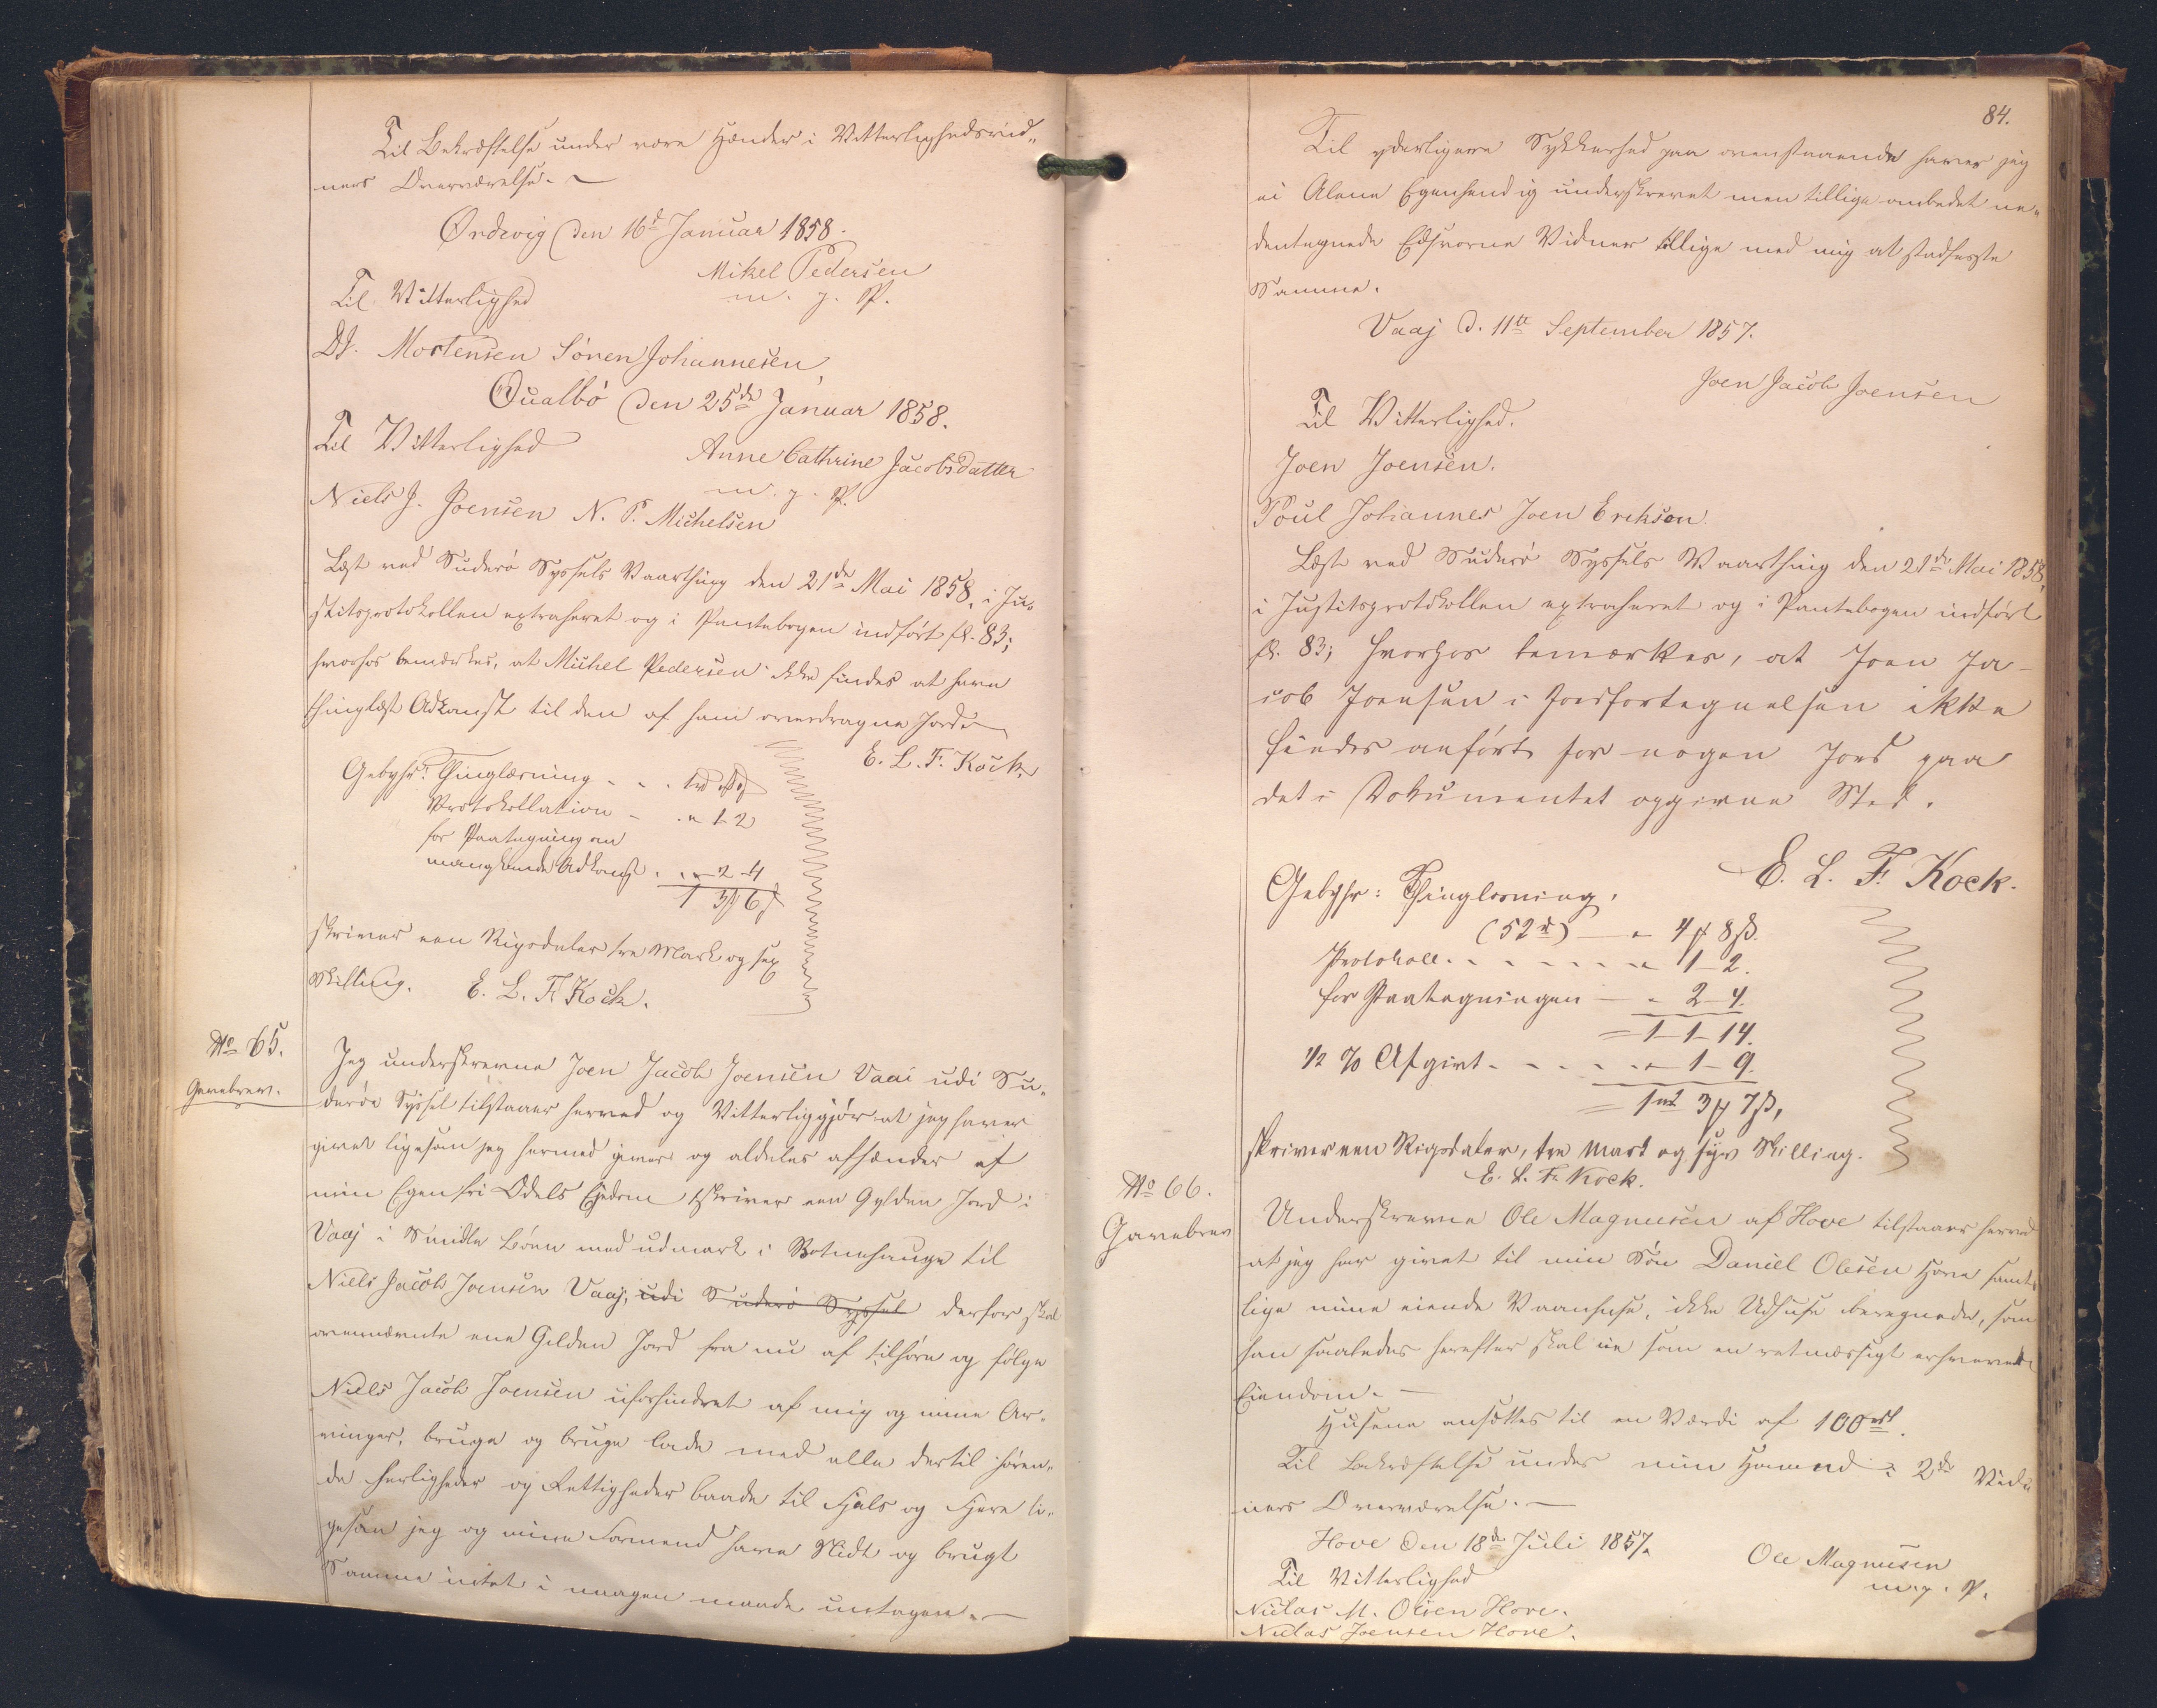 Til Bekræftelse under vore Hænder i Vitterlighedsvid„
ners Overværelse. –
Ordevig den 16d Januar 1858.
Mikel Pedersen
m. f. P.
Til Vitterlighed
Dd. Mortensen Sónen Johannesen,
Qualbó den 25de Januar 1858.
Til Vitterlighed
Anne Cathrine Jacobsdatter
m. f. P.
Niels J. Joensen N. P. Michelsen
Læst ved Suderó Syssels Vaarthing den 21de Mai 1858, i Ju„
stitsprotokollen extraheret og i Pantebogen indfórt fl. 83;
hvorhos bemærkes, at Michel Pedersen ikke findes at have
thinglæst Adkomst til den af ham overdragne Jord.
E. L. F. Kock.
Gebyhr: Thinglæsning - - -
Protokollation - . „ 1-2
for Paategning om
manglende Adkomst . . „ 2-4
1 3 ℳ 6 ß
skriver een Rigsdaler tre Mark og sex
Skilling. E. L. F. Kock.
No 65.
Gavebrev.
Jeg underskrevne Joen Jacob Joensen Vaai udi Su„
deróe Syssel tilstaaer herved og Vitterliggjór at jeg haver
givet ligesom jeg hermed giver og aldeles afhænder af
min Egen fri Odels Ejedom skriver een Gylden Jord i
Vaaj i Smidle Bóen med udmark i Botnehauge til
Niels Jacob Joensen Vaaj, udi Suderó Syssel derfor skal
ovennævnte ene Gilden Jord fra nu af tilhóre og fólge
Niels Jacob Joensen uforhindret af mig og mine Ar„
vinger, bruge og bruge lade med alle dertil hóren„
de herligheder og Rettigheder baade til Fjels og Fjere li„
gesom jeg og mine Formend have Nidt og brugt
Samme intet i nogen maade untagen. –
84.
Til yderligere Sykkerhed paa ovenstaaende haver jeg
ei Alene Egenhendig underskrevet men tillige ombedet ne„
dentegnede Edsvorne Vidner tillige med mig at stadfæste
Samme.
Vaaj d. 11te September 1857.
Joen Jacob Joensen
Til Vitterlighed.
Joen Joensen.
Poul Johannes Joen Eriksen.
Læst ved Suderó Syssels Vaarthing den 21de Mai 1858,
i Justitsprotokollen extraheret og i Pantebogen indfórt
fl. 83; hvorhos bemærkes, at Joen Ja-
cob Joensen i Jordfortegnelsen ikke
findes anfórt for nogen Jord paa
det i Dokumentet opgivne Sted.
E. L. F. Kock.
Gebyhr: Thinglæsning,
(52 rd) — „ 4 ℳ 8 ß.
Protokoll. . . . . . . „ 1-2.
for Paategningen — „ 2-4.
= 1-1-14.
1/2 % Afgivt - - - . . „ 1-9.
= 1 rd 3 ℳ 7 ß,
skriver een Rigsdaler, tre Mark og syv Skilling.
E. L. F. Kock.
No 66.
Gavebrev
Underskrevne Ole Magnusen af Hove tilstaaer herved
at jeg har givet til min Són Daniel Olesen Hove samt„
lige mine eiende Vaanhuse, ikke Udhuse beregnede, som
han saaledes herefter skal eie som en retmæssigt erhvervet
Eiendom. —
Husene ansættes til en Værdi af 100 rd.
Til Bekræftelse under min Haand i 2de Vid„
ners Overværelse. —
Hove den 18de Juli 1857.
Ole Magnusen
m. f. P.
Til Vitterlighed
Niclas M. Olsen Hove.
Niclas Joensen Hove.